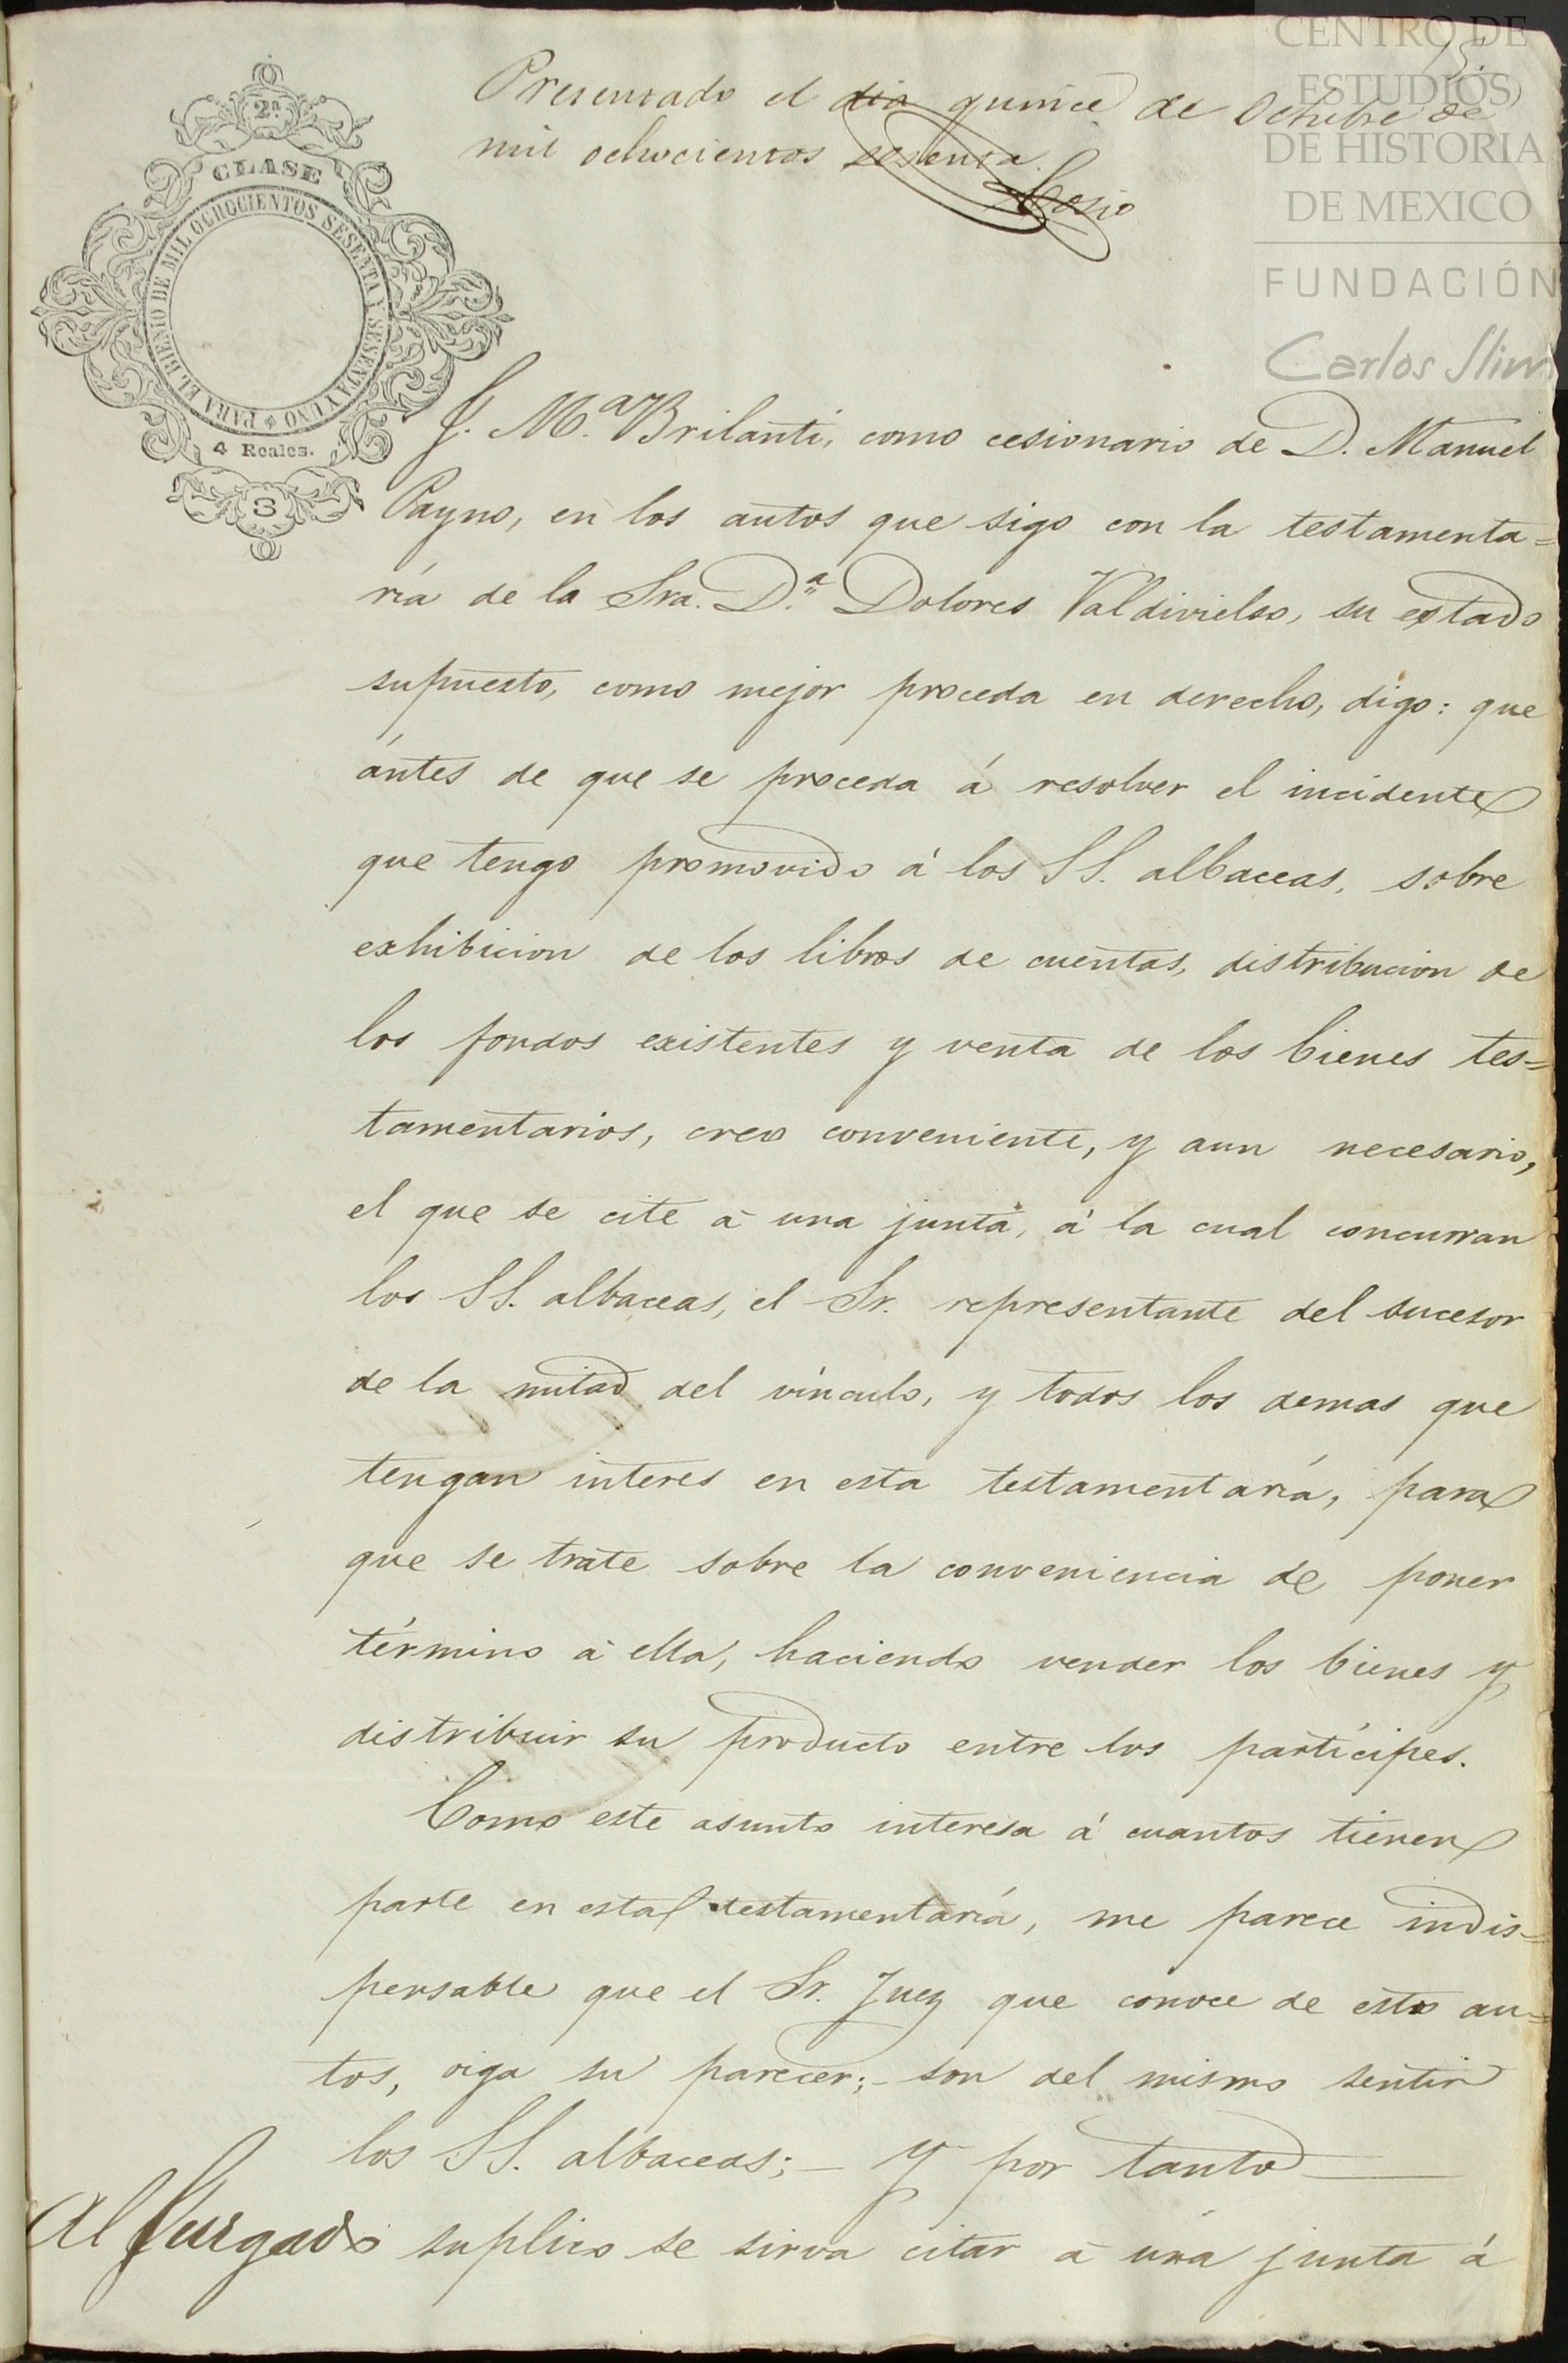 CENTRO DE
ESTUDIOS
DE HISTORIA
DE MEXICO
FUNDACIÓN
Carlos Slim
15
Presentado el dia quince de Octubre de
mil ochocientos sesenta.
Cosio
2ª
CLASE
PARA EL BIENIO DE MIL OCHOCIENTOS SESENTA Y SESENTA Y UNO
4 Reales.
S
J. M.ª Brilanti, como cesionario de D. Manuel
Payno, en los autos que sigo con la testamenta=
ría de la Sra. D.ª Dolores Valdivielso, su estado
supuesto, como mejor proceda en derecho, digo: que
ántes de que se proceda á resolver el incidente
que tengo promovido á los SS. albaceas, sobre
exhibicion de los libros de cuentas, distribucion de
los fondos existentes y venta de los bienes tes=
tamentarios, creo conveniente, y aun necesario,
el que se cite á una junta, á la cual concurran
los SS. albaceas, el Sr. representante del sucesor
de la mitad del vínculo, y todos los demas que
tengan interes en esta testamentaría, para
que se trate sobre la conveniencia de poner
término á ella, haciendo vender los bienes y
distribuir su producto entre los partícipes.
Como este asunto interesa á cuantos tienen
parte en esta testamentaría, me parece indis=
pensable que el Sr. Juez que conoce de estos au=
tos, oiga su parecer; son del mismo sentir
los SS. albaceas; y por tanto
Al Juzgado suplico se sirva citar á una junta á